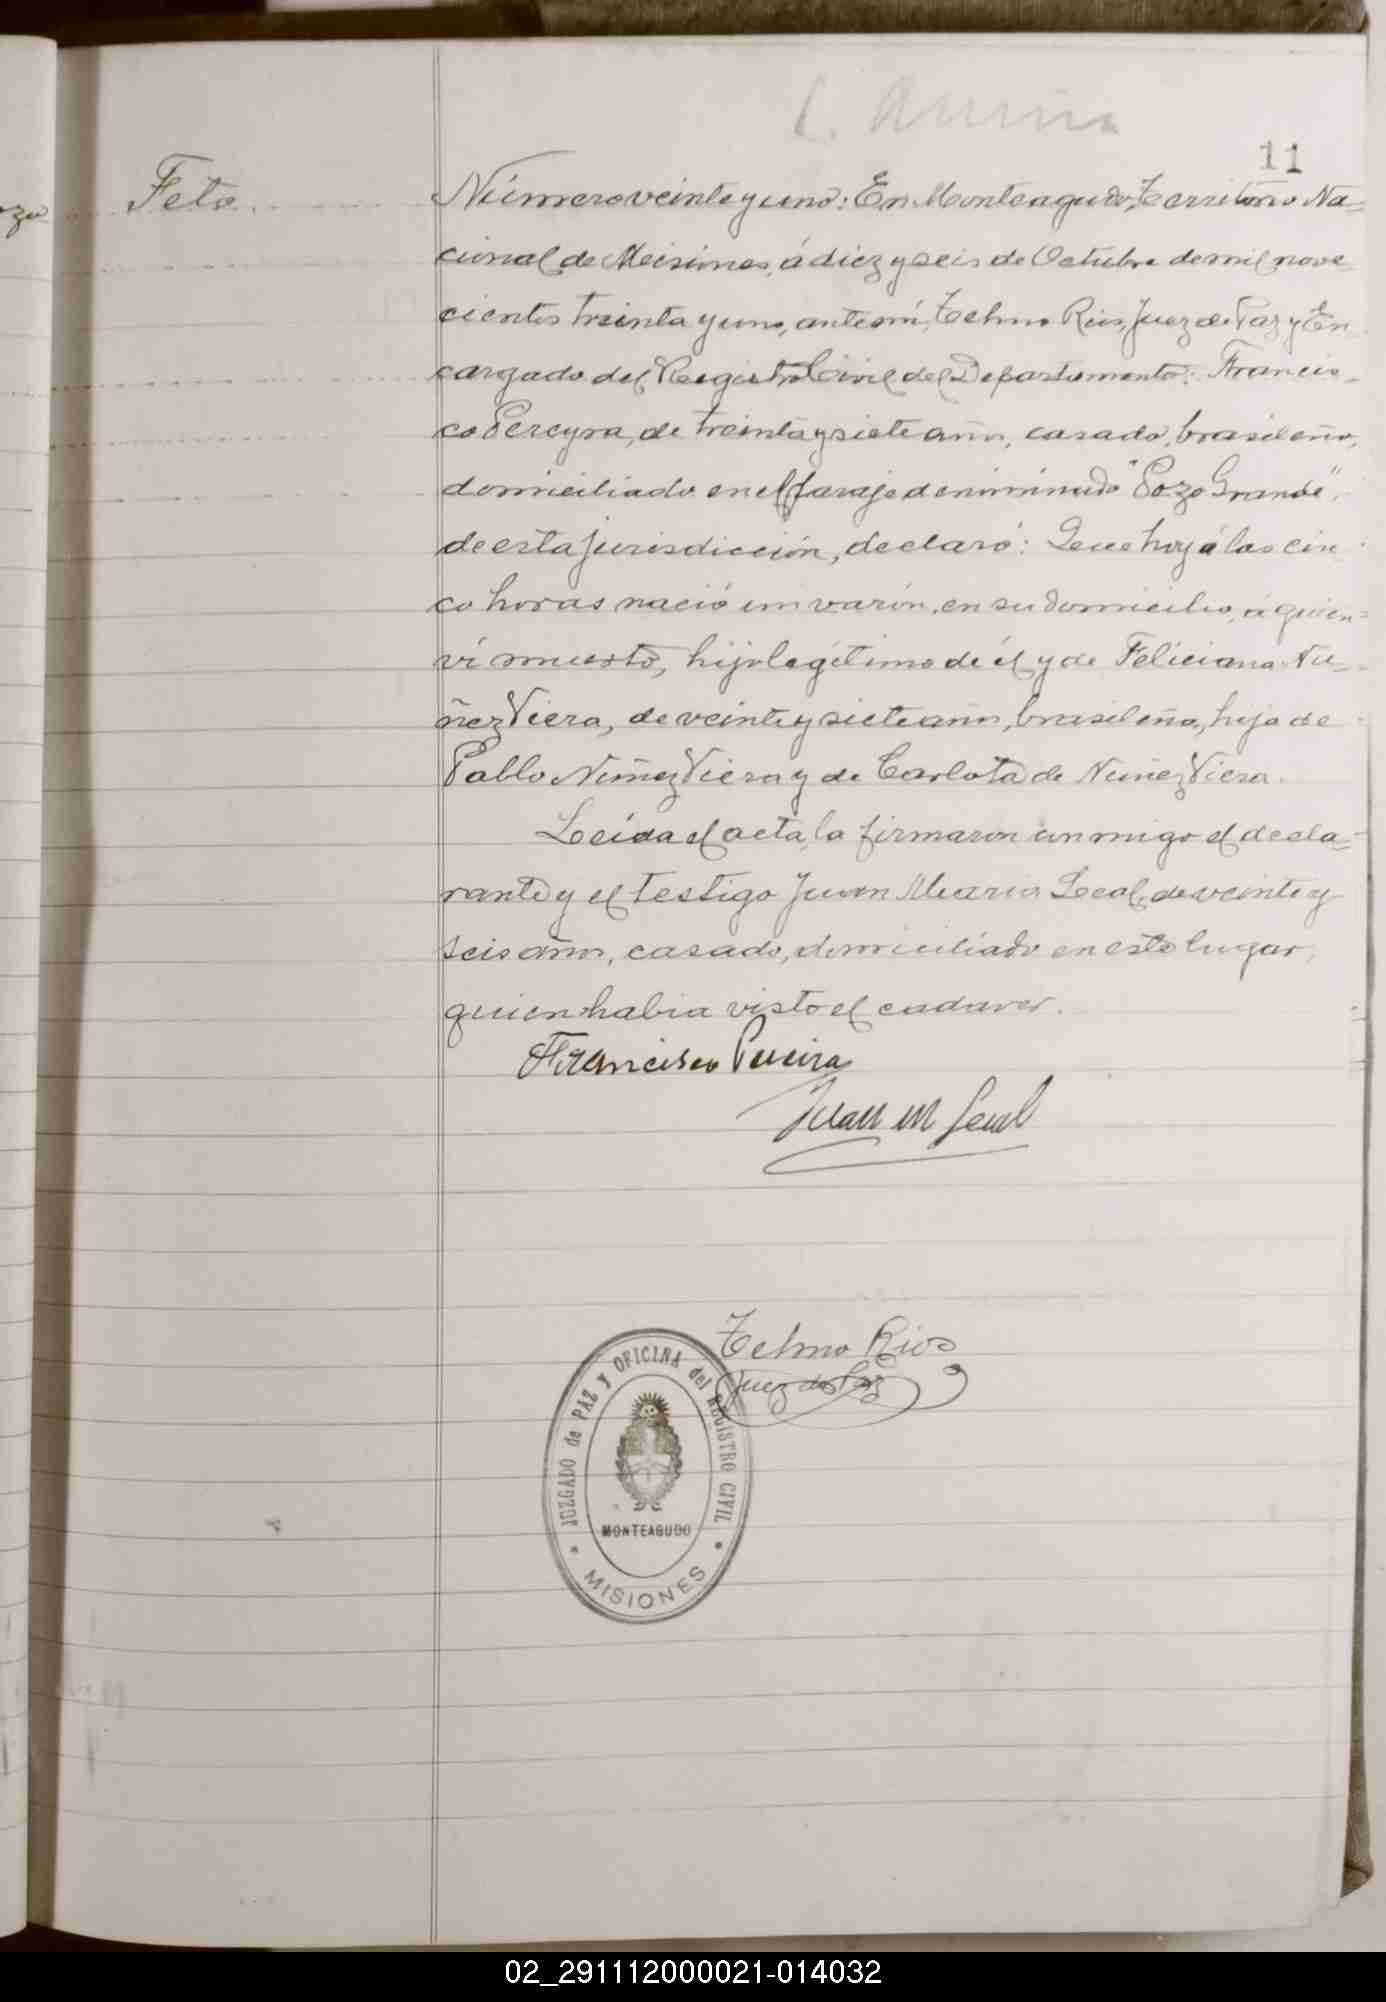 11
Feto.
Número veinte y uno: En Monteagudo, Territorio Na-
cional de Misiones, á diez y seis de Octubre de mil nove-
cientos treinta y uno, ante mí, Telmo Rios, Juez de Paz y En
cargado del Registro Civil del Departamento: Francis-
co Pereyra, de treinta y siete años, casado, brasileño,
domiciliado en el paraje denominado "Pozo Grande",
de esta jurisdicción, declaró: Que hoy á las cin-
co horas nació un varón, en su domicilio, á quien
ví muerto, hijo legítimo de él y de Feliciana Nu-
ñez Viera, de veinte y siete años, brasileña, hija de
Pablo Nuñez Viera y de Carlota de Nuñez Viera.
Leída el acta, la firmaron conmigo el decla-
rante y el testigo Juan Maria Leal, de veinte y
seis años, casado, domiciliado en este lugar,
quien habia visto el cadaver.
Francisco Pereira
Juan M Leal
Telmo Rios
Juez de Paz
JUZGADO de PAZ y OFICINA del REGISTRO CIVIL
MONTEAGUDO
MISIONES
02_291112000021-014032